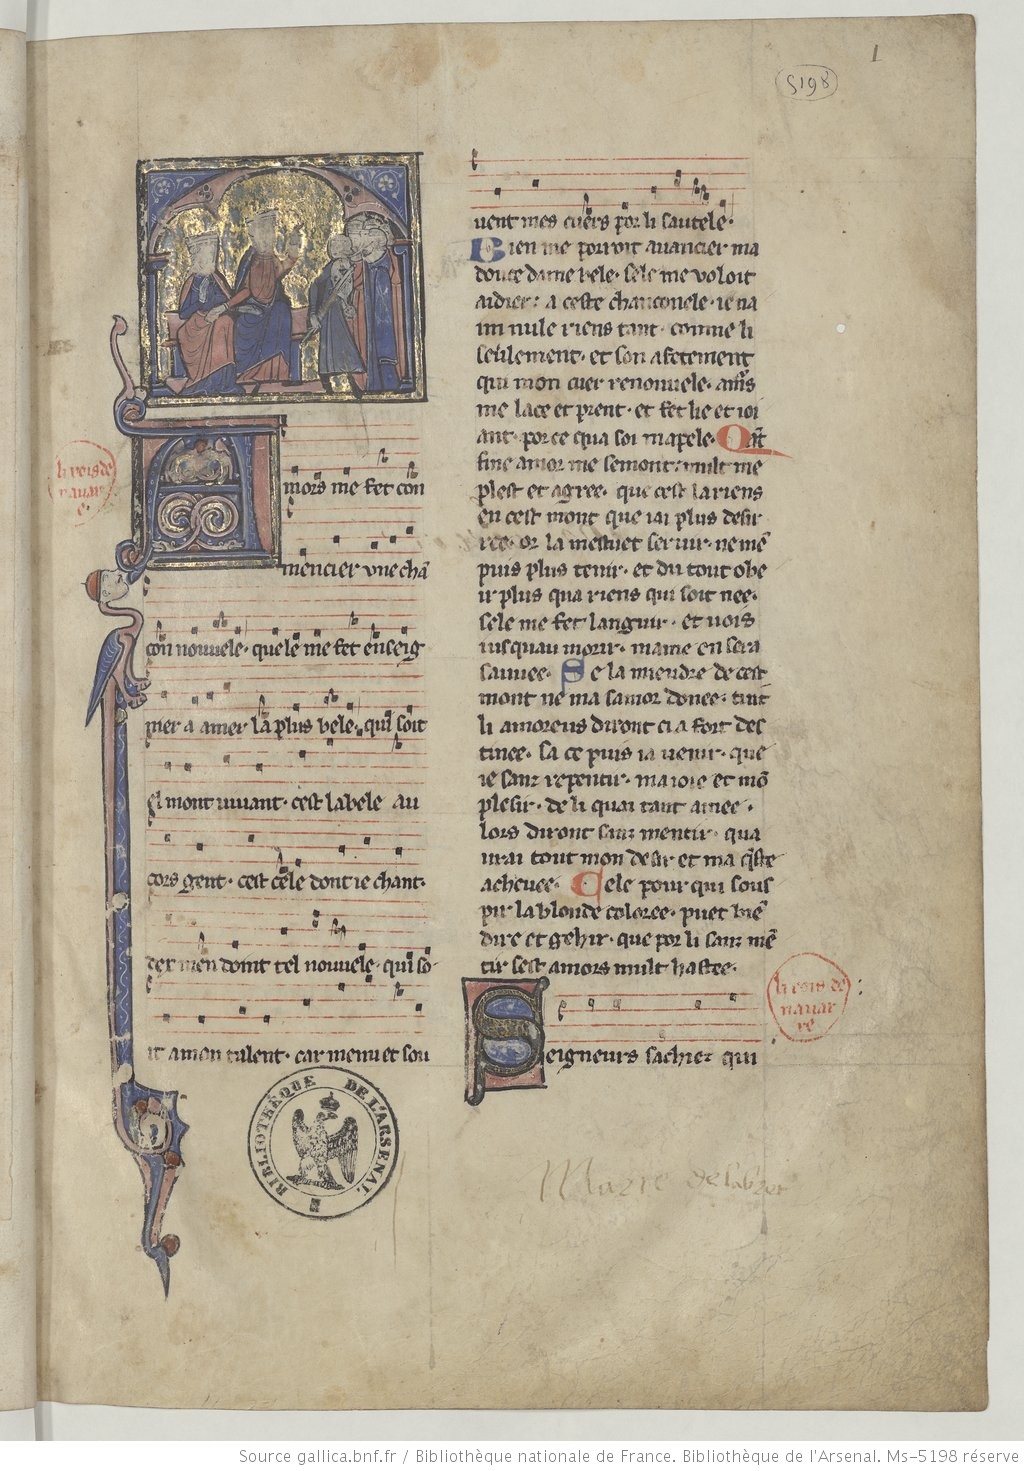 1
5198
li rois de
navar
re
Amors me fet con
mencier une chā
çon nouvele· quele me fet enseig
nier a amer la plus bele· qui soit
el mont vivant· cest la bele au
cors gent· cest cele dont ie chant·
dex men doint tel nouvele· qui so
it a mon talent· car menu et sou
vent mes cuers por li sautele·
Bien me porroit avancier ma
douce dame bele· sele me voloit
aidier· a ceste chanconele· ie na
im nule riens tant· comme li
seulement· et son afetement
qui mon cuer renouvele· amᷤ
me lace et prent· et fet lie et ioi
ant· por ce qua soi mapele· Qāt
fine amor me semont· mult me
plest et agree· que cest la riens
en cest mont que iai plus desir
ree· or la mestuet servir· ne mē
puis plus tenir· et du tout obe
ir plus qua riens qui soit nee·
sele me fet languir· et vois
iusquau morir· mame en sera
sauvee· Se la miendre de cest
mont ne ma samor donee· tuit
li amoreus diront ci a fort des
tinee· sa ce puis ia venir· que
ie sanz repentir· ma ioie et mō
plesir· de li quai tant amee·
lors diront sanz mentir· qua
vrai tout mon desir et ma qͥste
achevee· Cele pour qui sous
pir la blonde coloree· puet biē
dire et gehir· que por li sanz mē
tir sest amors mult hastee·
li rois de
navar
re
Seigneurs sachiez qui
BIBLIOTHÈQUE DE L'ARSENAL
Marie
Source gallica.bnf.fr / Bibliothèque nationale de France. Bibliothèque de l'Arsenal. Ms-5198 réserve